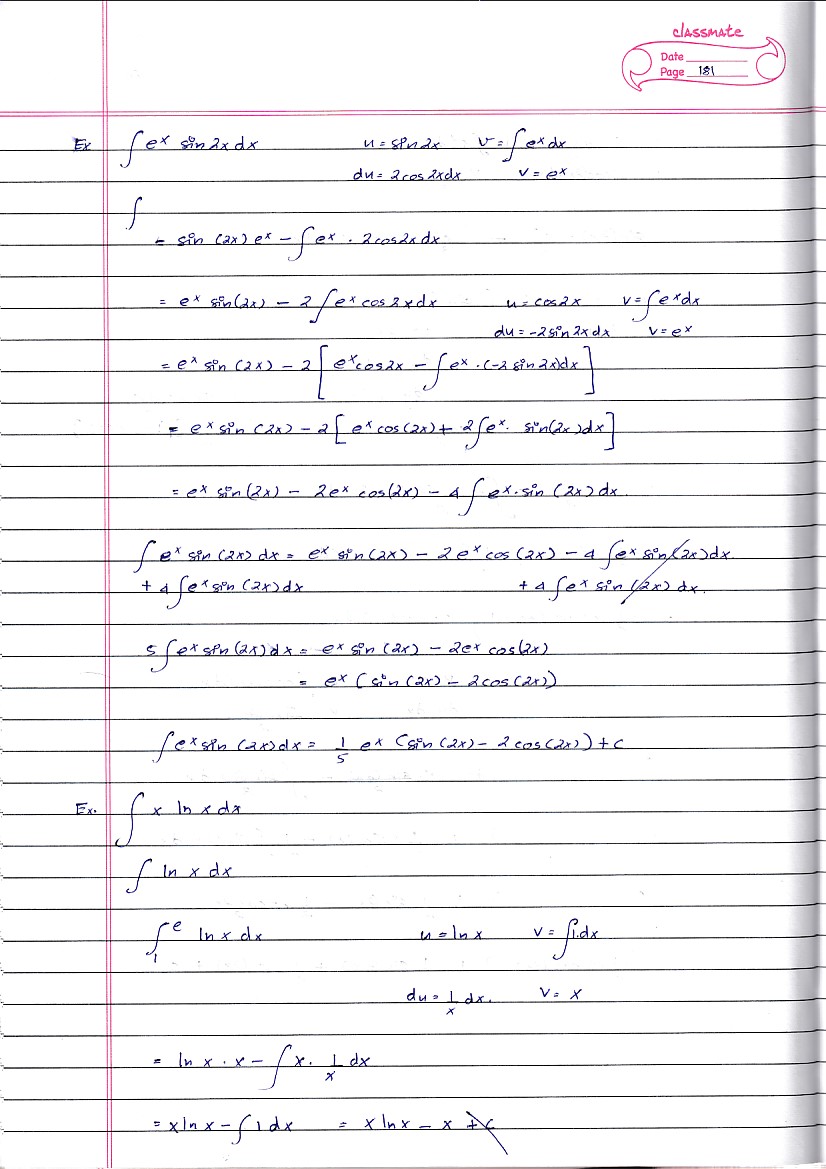 classmate
Date
Page 181
Ex ∫ e^x sin 2x dx u = sin 2x v = ∫ e^x dx
du = 2cos 2x dx v = e^x
∫
= sin (2x) e^x − ∫ e^x · 2cos2x dx
= e^x sin(2x) − 2 ∫ e^x cos 2x dx u = cos2x v = ∫ e^x dx
du = −2 sin 2x dx v = e^x
= e^x sin (2x) − 2 [ e^x cos2x − ∫ e^x · (−2 sin 2x)dx ]
= e^x sin (2x) − 2 [ e^x cos(2x) + 2 ∫ e^x · sin(2x) dx ]
= e^x sin(2x) − 2e^x cos(2x) − 4 ∫ e^x · sin (2x) dx
∫ e^x sin (2x) dx = e^x sin(2x) − 2 e^x cos (2x) − 4 ∫ e^x sin(2x) dx
+ 4 ∫ e^x sin (2x) dx + 4 ∫ e^x sin (2x) dx
5 ∫ e^x sin (2x) dx = e^x sin (2x) − 2e^x cos(2x)
= e^x (sin (2x) − 2cos(2x))
∫ e^x sin (2x) dx = 1/5 e^x (sin (2x) − 2 cos(2x)) + c
Ex. ∫ x ln x dx
∫ ln x dx
∫_1^e ln x dx u = ln x v = ∫ 1.dx
du = 1/x dx. v = x
= ln x · x − ∫ x · 1/x dx
= x ln x − ∫ 1 dx = x ln x − x + c